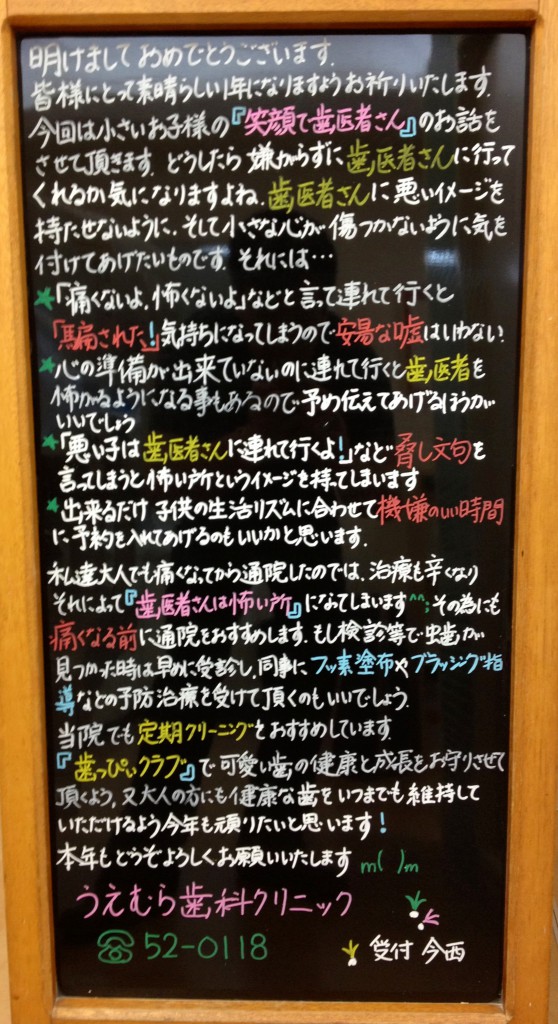 明けましておめでとうございます.
皆様にとって素晴らしい1年になりますようお祈りいたします.
今回は小さいお子様の『笑顔で歯医者さん』のお話を
させて頂きます. どうしたら 嫌がらずに歯医者さんに行って
くれるか気になりますよね. 歯医者さんに悪いイメージを
持たせないように. そして小さな心が傷つかないように気を
付けてあげたいものです. それには…
★「痛くないよ、怖くないよ」などと言って連れて行くと
「騙された!」気持ちになってしまうので安易な嘘はいわない.
★心の準備が出来ていないのに連れて行くと歯医者を
怖がるようになる事もあるので予め伝えてあげるほうが
いいでしょう
★「悪い子は歯医者さんに連れて行くよ!」など脅し文句を
言ってしまうと怖い所というイメージを持ってしまいます
★出来るだけ子供の生活リズムに合わせて機嫌のいい時間
に予約を入れてあげるのもいいかと思います.
私達大人でも痛くなってから通院したのでは、治療も辛くなり
それによって『歯医者さんは怖い所』になってしまいます^^; その為にも
痛くなる前に通院をおすすめします. もし検診等で虫歯が
見つかった時は早めに受診し、同時にフッ素塗布やブラッシング指
導などの予防治療を受けて頂くのもいいでしょう.
当院でも定期クリーニングをおすすめしています.
『歯っぴぃクラブ』で可愛い歯の健康と成長をお守りさせて
頂くよう、又大人の方にも健康な歯をいつまでも維持して
いただけるよう今年も頑りたいと思います!
本年もどうぞよろしくお願いいたします m( )m
うえむら歯科クリニック
☎52-0118
受付 今西